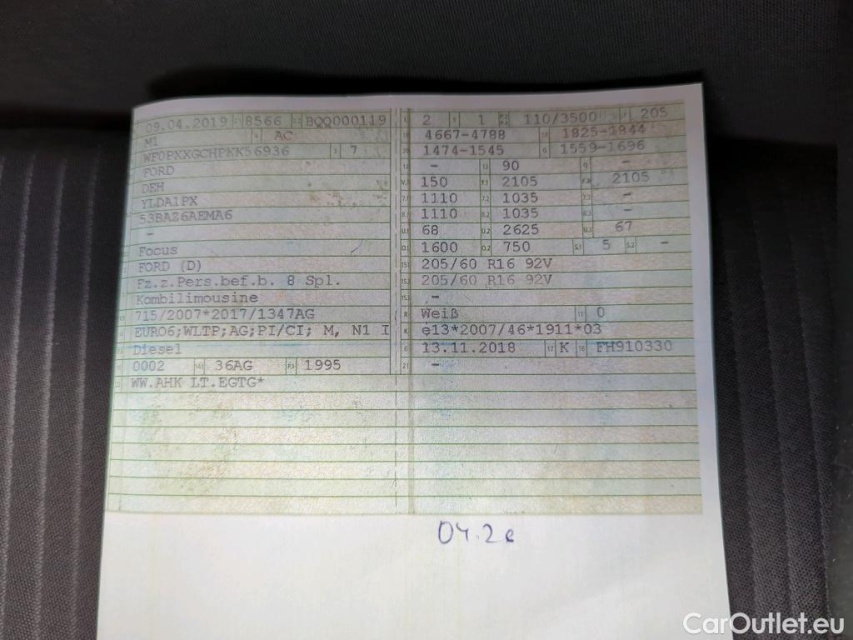 09.04.2019 8566 BQQ000119
M1 AC
WF0PXXGCHPKK56936 7
FORD
DEH
YLDA1PX
53BAZ6AEMA6
-
Focus
FORD (D)
Fz.z.Pers.bef.b. 8 Spl.
Kombilimousine
715/2007*2017/1347AG
EURO6;WLTP;AG;PI/CI; M, N1 I
Diesel
0002 36AG 1995
WW.AHK LT.EGTG*
2 1 110/3500 205
4667-4788 1825-1844
1474-1545 1559-1696
- 90 -
150 2105 2105
1110 1035 -
1110 1035 -
68 2625 67
1600 750 5 -
205/60 R16 92V
205/60 R16 92V
-
Weiß 0
e13*2007/46*1911*03
13.11.2018 K FH910330
-
04.2
CarOutlet.eu